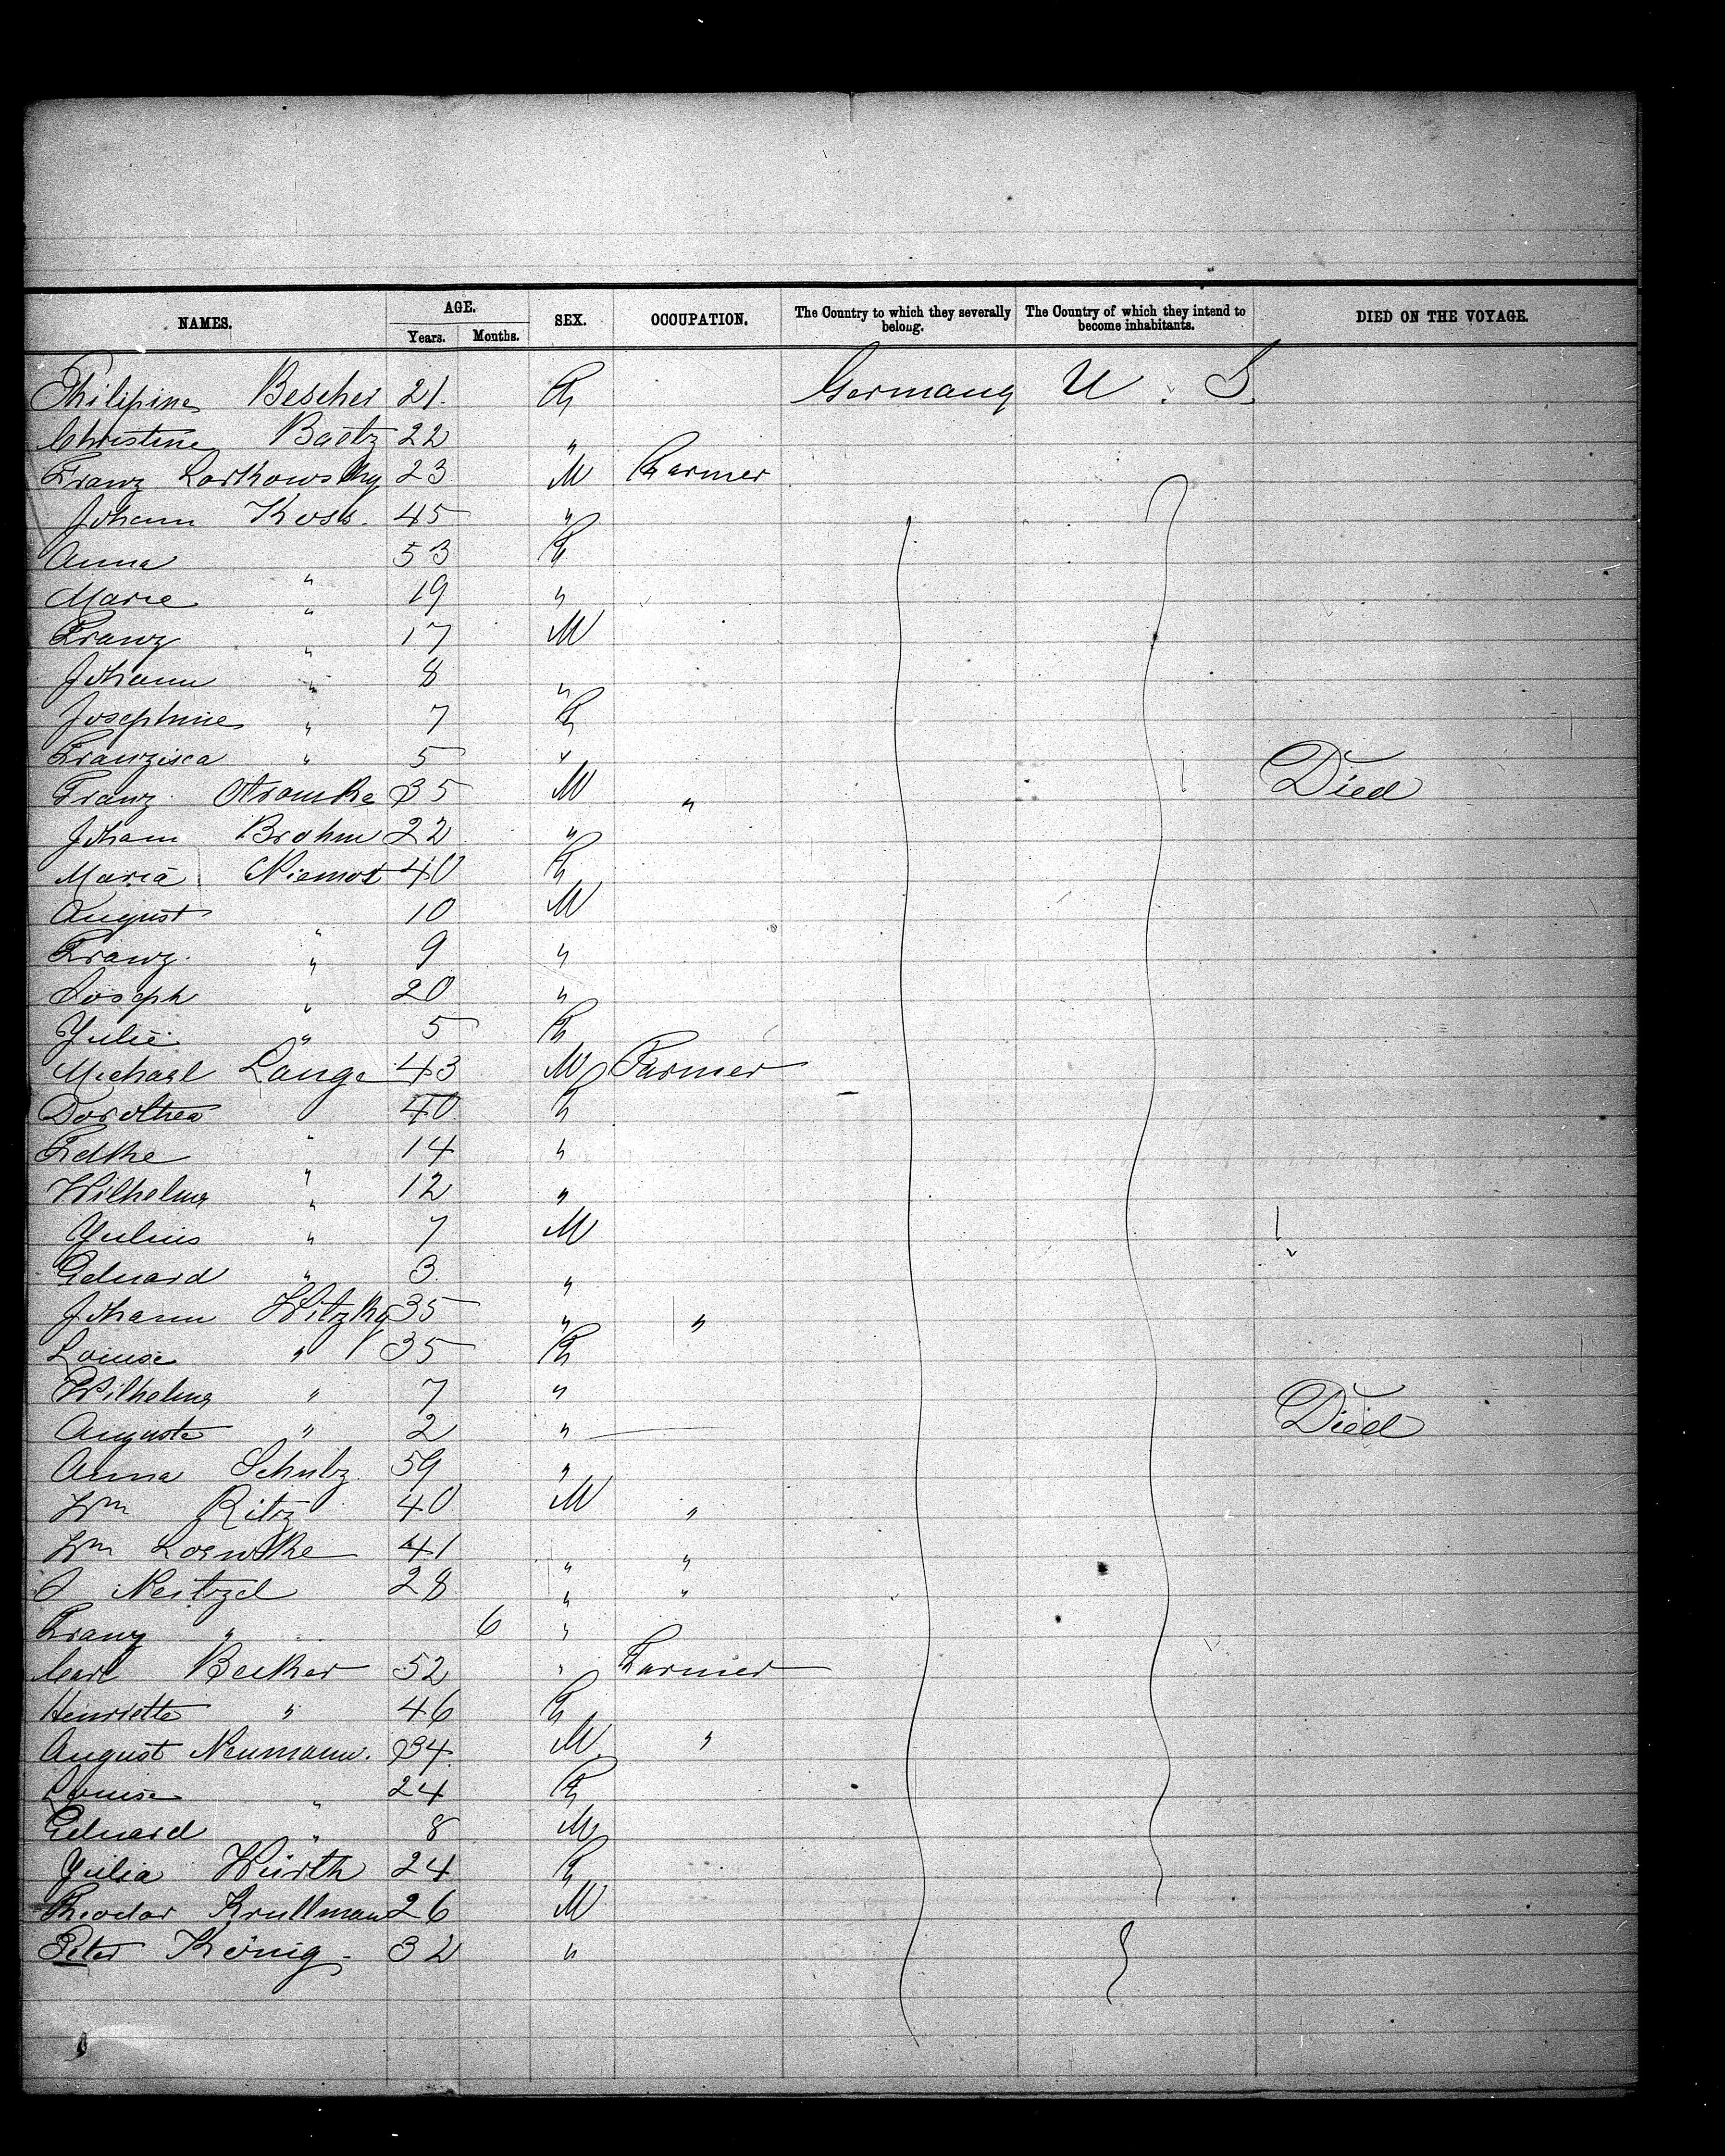 NAMES. AGE. Years. Months. SEX. OCCUPATION. The Country to which they severally belong. The Country of which they intend to become inhabitants. DIED ON THE VOYAGE.
Philipine Bescher 21. F Germany U. S.
Christine Baetz 22 "
Franz Lorkowsky 23 M Farmer
Johann Koss. 45 "
Anna " 53 F
Marie " 19 "
Franz " 17 M
Johann " 8 "
Josephine " 7 F
Franzisca " 5 "
Franz 35 M " Died
Johann Brohm 22 "
Maria 40 F
August " 10 M
Franz " 9 "
Joseph " 20 "
Julie " 5 F
Michael Lange 43 M Farmer
Dorothea " 40 F
" 14 "
Wilhelma " 12 "
Julius " 7 M
Eduard " 3 "
Johann Witzky 35 " "
Louise " 35 F
Wilhelma " 7 "
Auguste " 2 " Died
Anna Schulz 59 "
Wm Ritz 40 M "
Wm 41 " "
Neitzel 28 " "
Franz " 6 "
Carl Becker 52 " Farmer
Henriette " 46 F
August Neumann. 34 M "
Louise " 24 F
Eduard " 8 M
Julia Würth 24 F
Theodor Krullmann 26 M
Peter König. 32 "